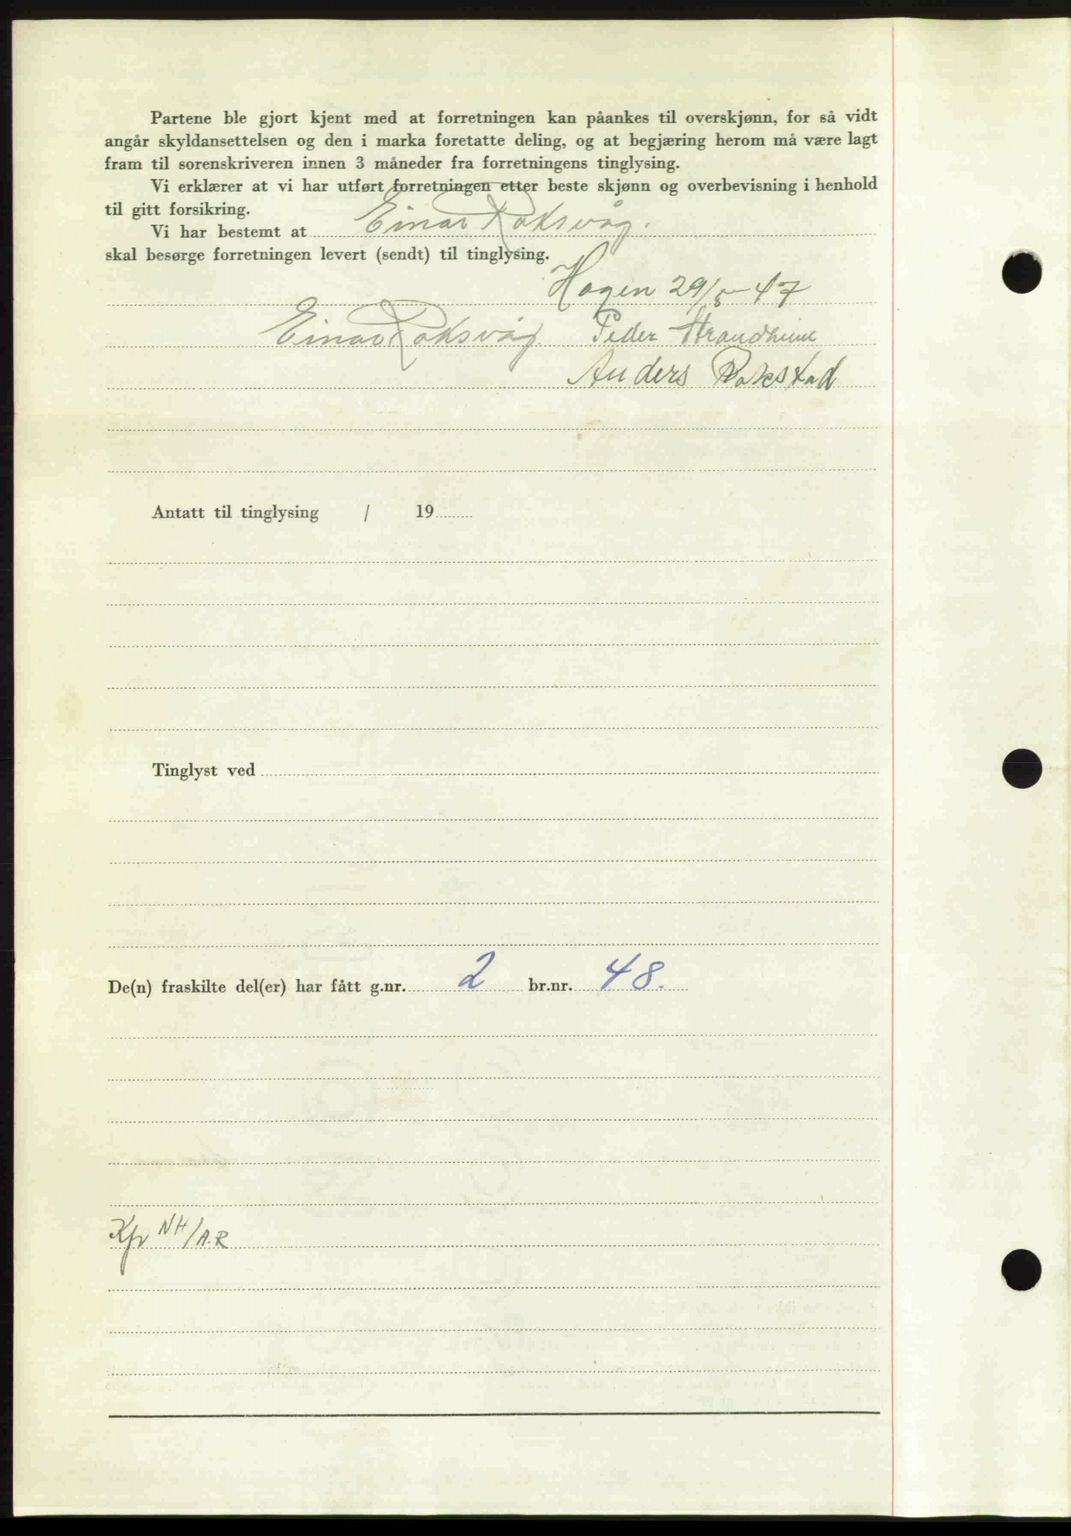 Partene ble gjort kjent med at forretningen kan påankes til overskjønn, for så vidt
angår skyldansettelsen og den i marka foretatte deling, og at begjæring herom må være lagt
fram til sorenskriveren innen 3 måneder fra forretningens tinglysing.
Vi erklærer at vi har utført forretningen etter beste skjønn og overbevisning i henhold
til gitt forsikring.
Vi har bestemt at Einar Roksvåg.
skal besørge forretningen levert (sendt) til tinglysing.
Hagen 29/5-47
Einar Roksvåg. Peder Strandheim
Anders Rokstad
Antatt til tinglysing / 19
Tinglyst ved
De(n) fraskilte del(er) har fått g.nr. 2 br.nr. 48.
Kfr NH/A.R